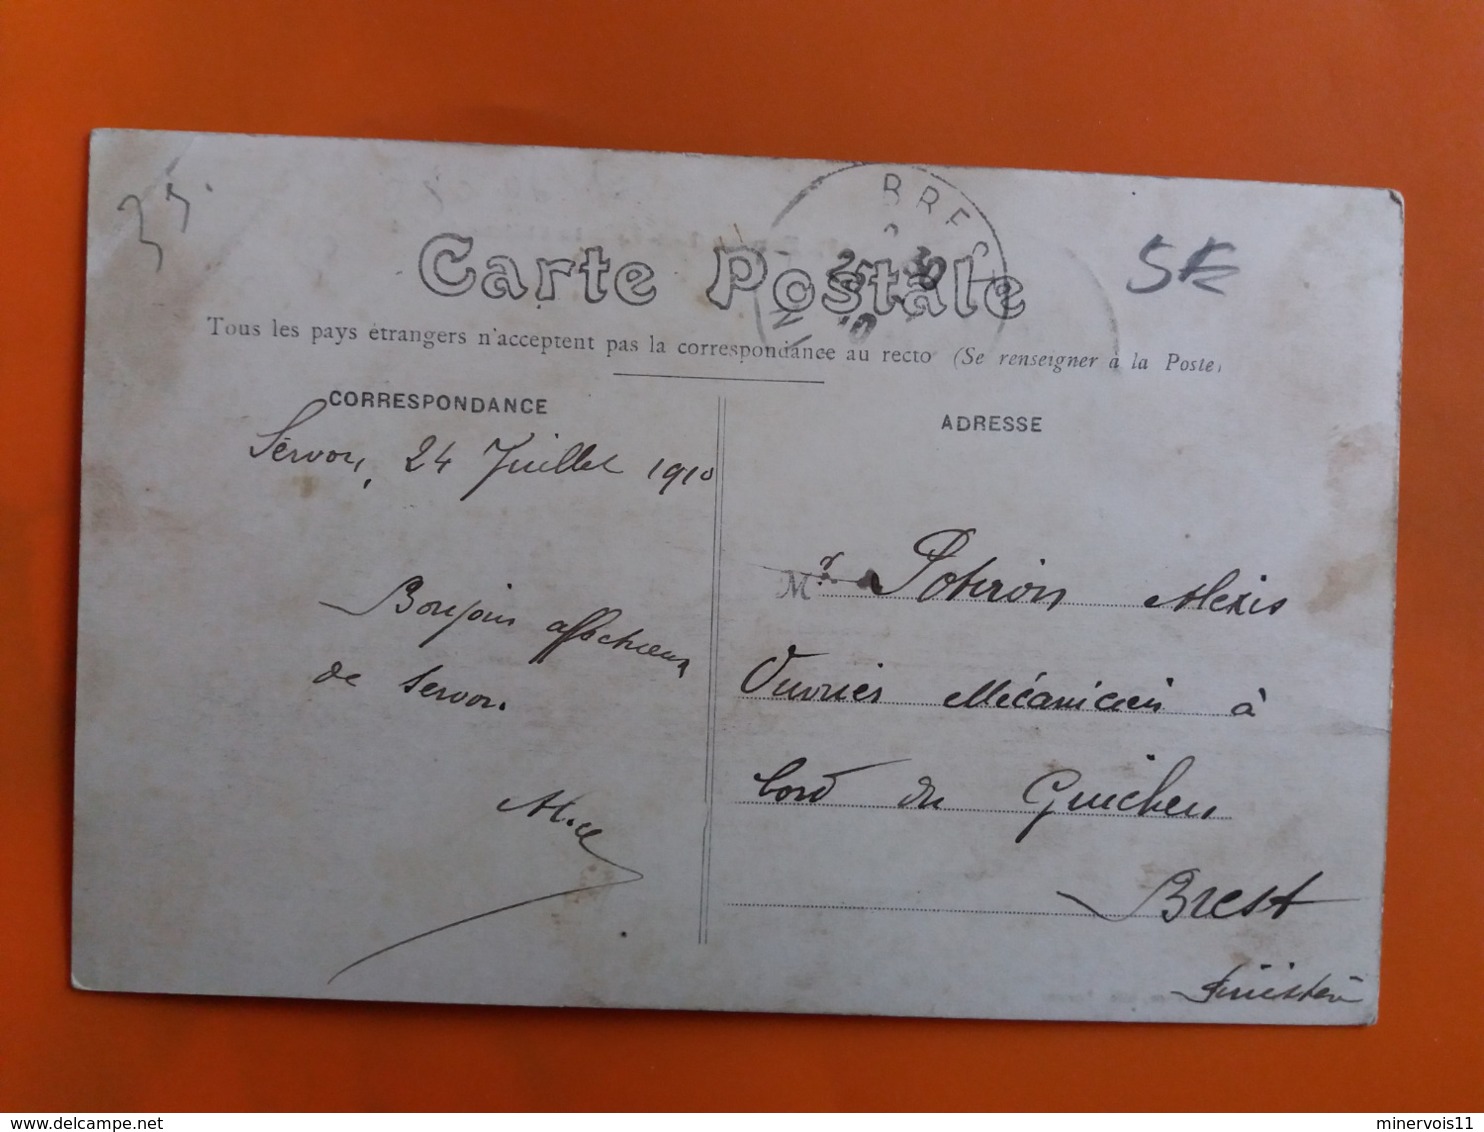 35
BREST
Carte Postale
5€
Tous les pays étrangers n'acceptent pas la correspondance au recto (Se renseigner à la Poste)
CORRESPONDANCE
ADRESSE
Servon, 24 Juillet 1910
Bonjour affectueux
de Servon.
Mr Potiron Alexis
Ouvrier Mécanicien à
bord du Guichen
Brest
Finistère
minervois11